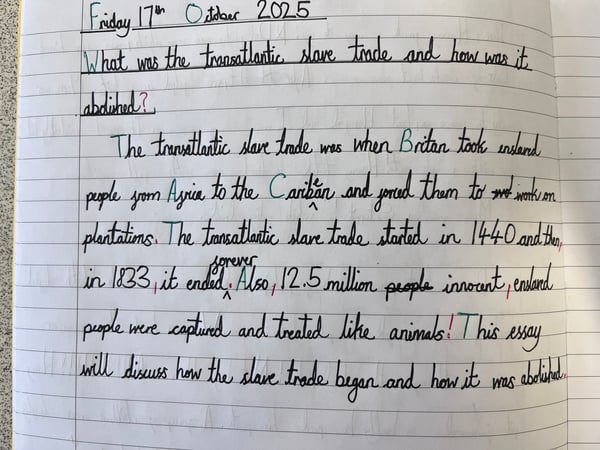 Friday 17th October 2025
What was the transatlantic slave trade and how was it
abolished?
The transatlantic slave trade was when Britan took enslaved
people from Africa to the Caribean and forced them to not work on
plantations. The transatlantic slave trade started in 1440 and then,
forever
in 1833, it ended. Also, 12.5 million people innocent, enslaved
people were captured and treated like animals! This essay
will discuss how the slave trade began and how it was abolished.